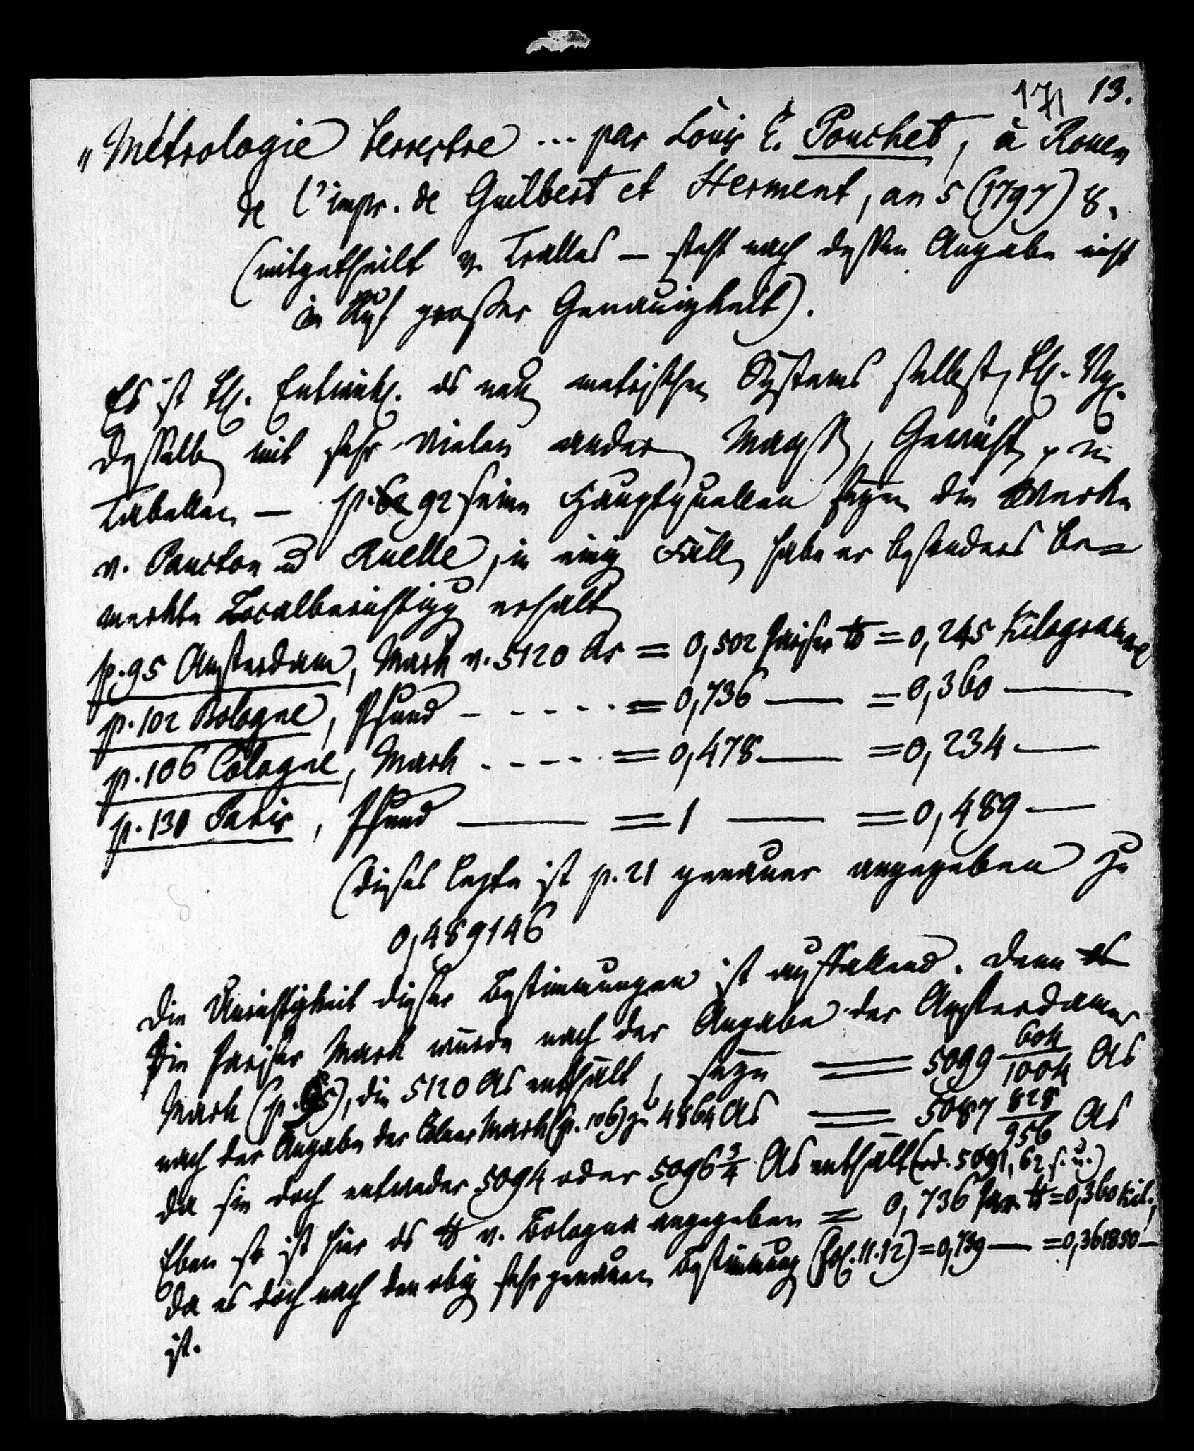 171 13.
„Métrologie terrestre ... par Louis E. Pouchet, à Rouen
de l'impr. de Guilbert et Herment, an 5 (1797) 8.
(mitgetheilt v. Tralles — steht nach dessen Angabe nicht
in Ruf großer Genauigkeit).
Es ist Entwick. des neuen metrischen Systems selbst,
desselben mit sehr vielen andern Maaßen, Gewichten, u
Tabellen — p. 92 seine Hauptquellen seyen die Werke
v. Paucton u Ruelle, in einigen Fällen habe er besonders be=
merkte Localberichtigungen erhalten
p. 95 Amsterdam, Mark v. 5120 As = 0,502 Pariser ℔ = 0,245 Kilogramme
p. 102 Bologne, Pfund - - - - - = 0,736 — = 0,360 —
p. 106 Cologne, Mark - - - - = 0,478 — = 0,234 —
p. 131 Paris, Pfund — = 1 — = 0,489 —
(dieses letzte ist p. 21 genauer angegeben zu
0,489146
Die Unrichtigkeit dieser Bestimmungen ist auffallend. Denn
die Pariser Mark würde nach der Angabe der Amsterdamer
Mark (p. 95), die 5120 As enthält, seyn = 5099 604/1004 As
nach der Angabe der Cölner Mark (p. 106) zu 4864 As = 5087 828/956 As
da sie doch entweder 5094 oder 5096 3/4 As enthält (od. 5091,62 s. u.)
Eben so ist hier das ℔ v. Bologna angegeben = 0,736 Par. ℔ = 0,360 Kil.,
da es doch nach den obigen sehr genauen Bestimmung (Fol. 11. 12) = 0,739 — = 0,361850 —
ist.